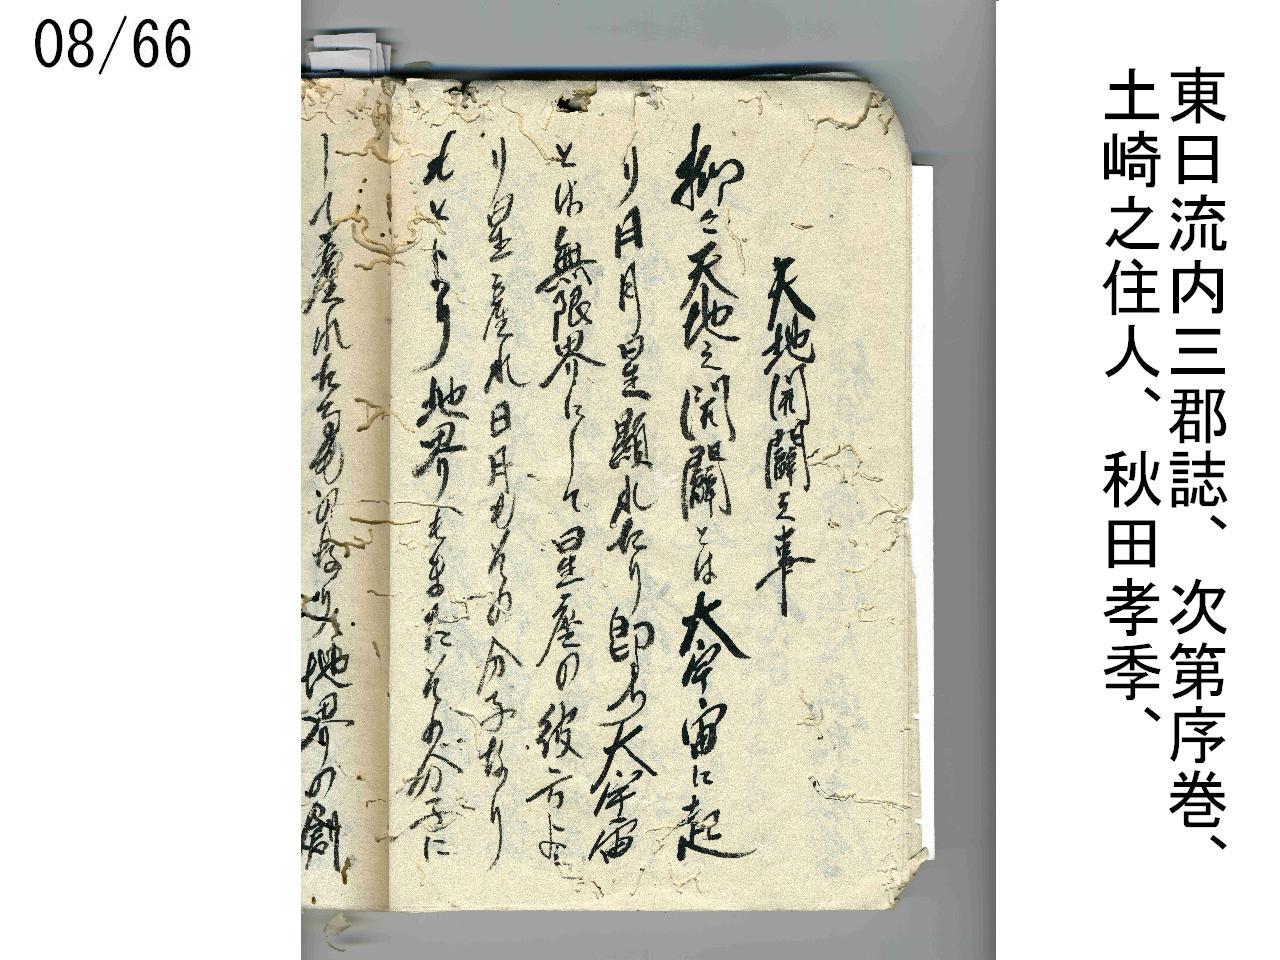 08/66
東日流内三郡誌、次第序巻、
土崎之住人、秋田孝季、
天地開闢之事
抑々天地之開闢とは大宇宙に起
り日月星顕れたり即ち大宇宙
とは無限界にして星座の彼方よ
り星産れ日月もその分子なり
もとより地界もまたその分子に
して産れたるものなり地界の創